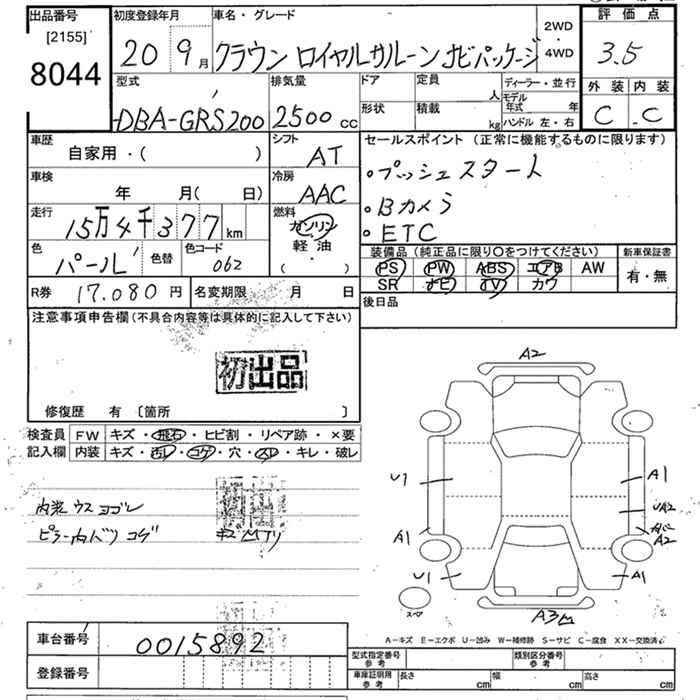 出品番号 初度登録年月 車名・グレード 評価点
[2155]
8044
20 9月 クラウン ロイヤルサルーン ナビパッケージ 2WD・4WD 3.5
型式 排気量 ドア 定員 人 ディーラー・並行 外装 内装
DBA-GRS200 2500cc 形状 積載 kg モデル年式 年 ハンドル 左・右 C C
車歴 自家用・( ) シフト AT セールスポイント (正常に機能するものに限ります)
・プッシュスタート
車検 年 月( 日) 冷房 AAC ・Bカメラ
走行 15万4千377km 燃料 ガソリン・軽油・( ) ・ETC
色 パール 色替 色コード 062 装備品 (純正品に限り〇をつけてください) 新車保証書
PS PW ABS エアB AW 有・無
R券 17.080円 名変期限 月 日 SR ナビ TV カワ
注意事項申告欄(不具合内容等は具体的に記入して下さい) 後日品
初出品
修復歴 有 〔箇所 〕
検査員記入欄 FW キズ・飛石・ヒビ割・リペア跡・×要
内装 キズ・汚レ・コゲ・穴・スレ・キレ・破レ
内装 ウスヨゴレ
ピラー内バリ コゲ
A2
U1 A1
UA2
A1 A2
U1 A1
スペア A3
A-キズ E-エクボ U-凹み W-補修跡 S-サビ C-腐食 XX-交換済
車台番号 0015892 型式指定番号 参考 類別区分番号 参考
登録番号 車庫証明用 参考 長さ cm 幅 cm 高さ cm